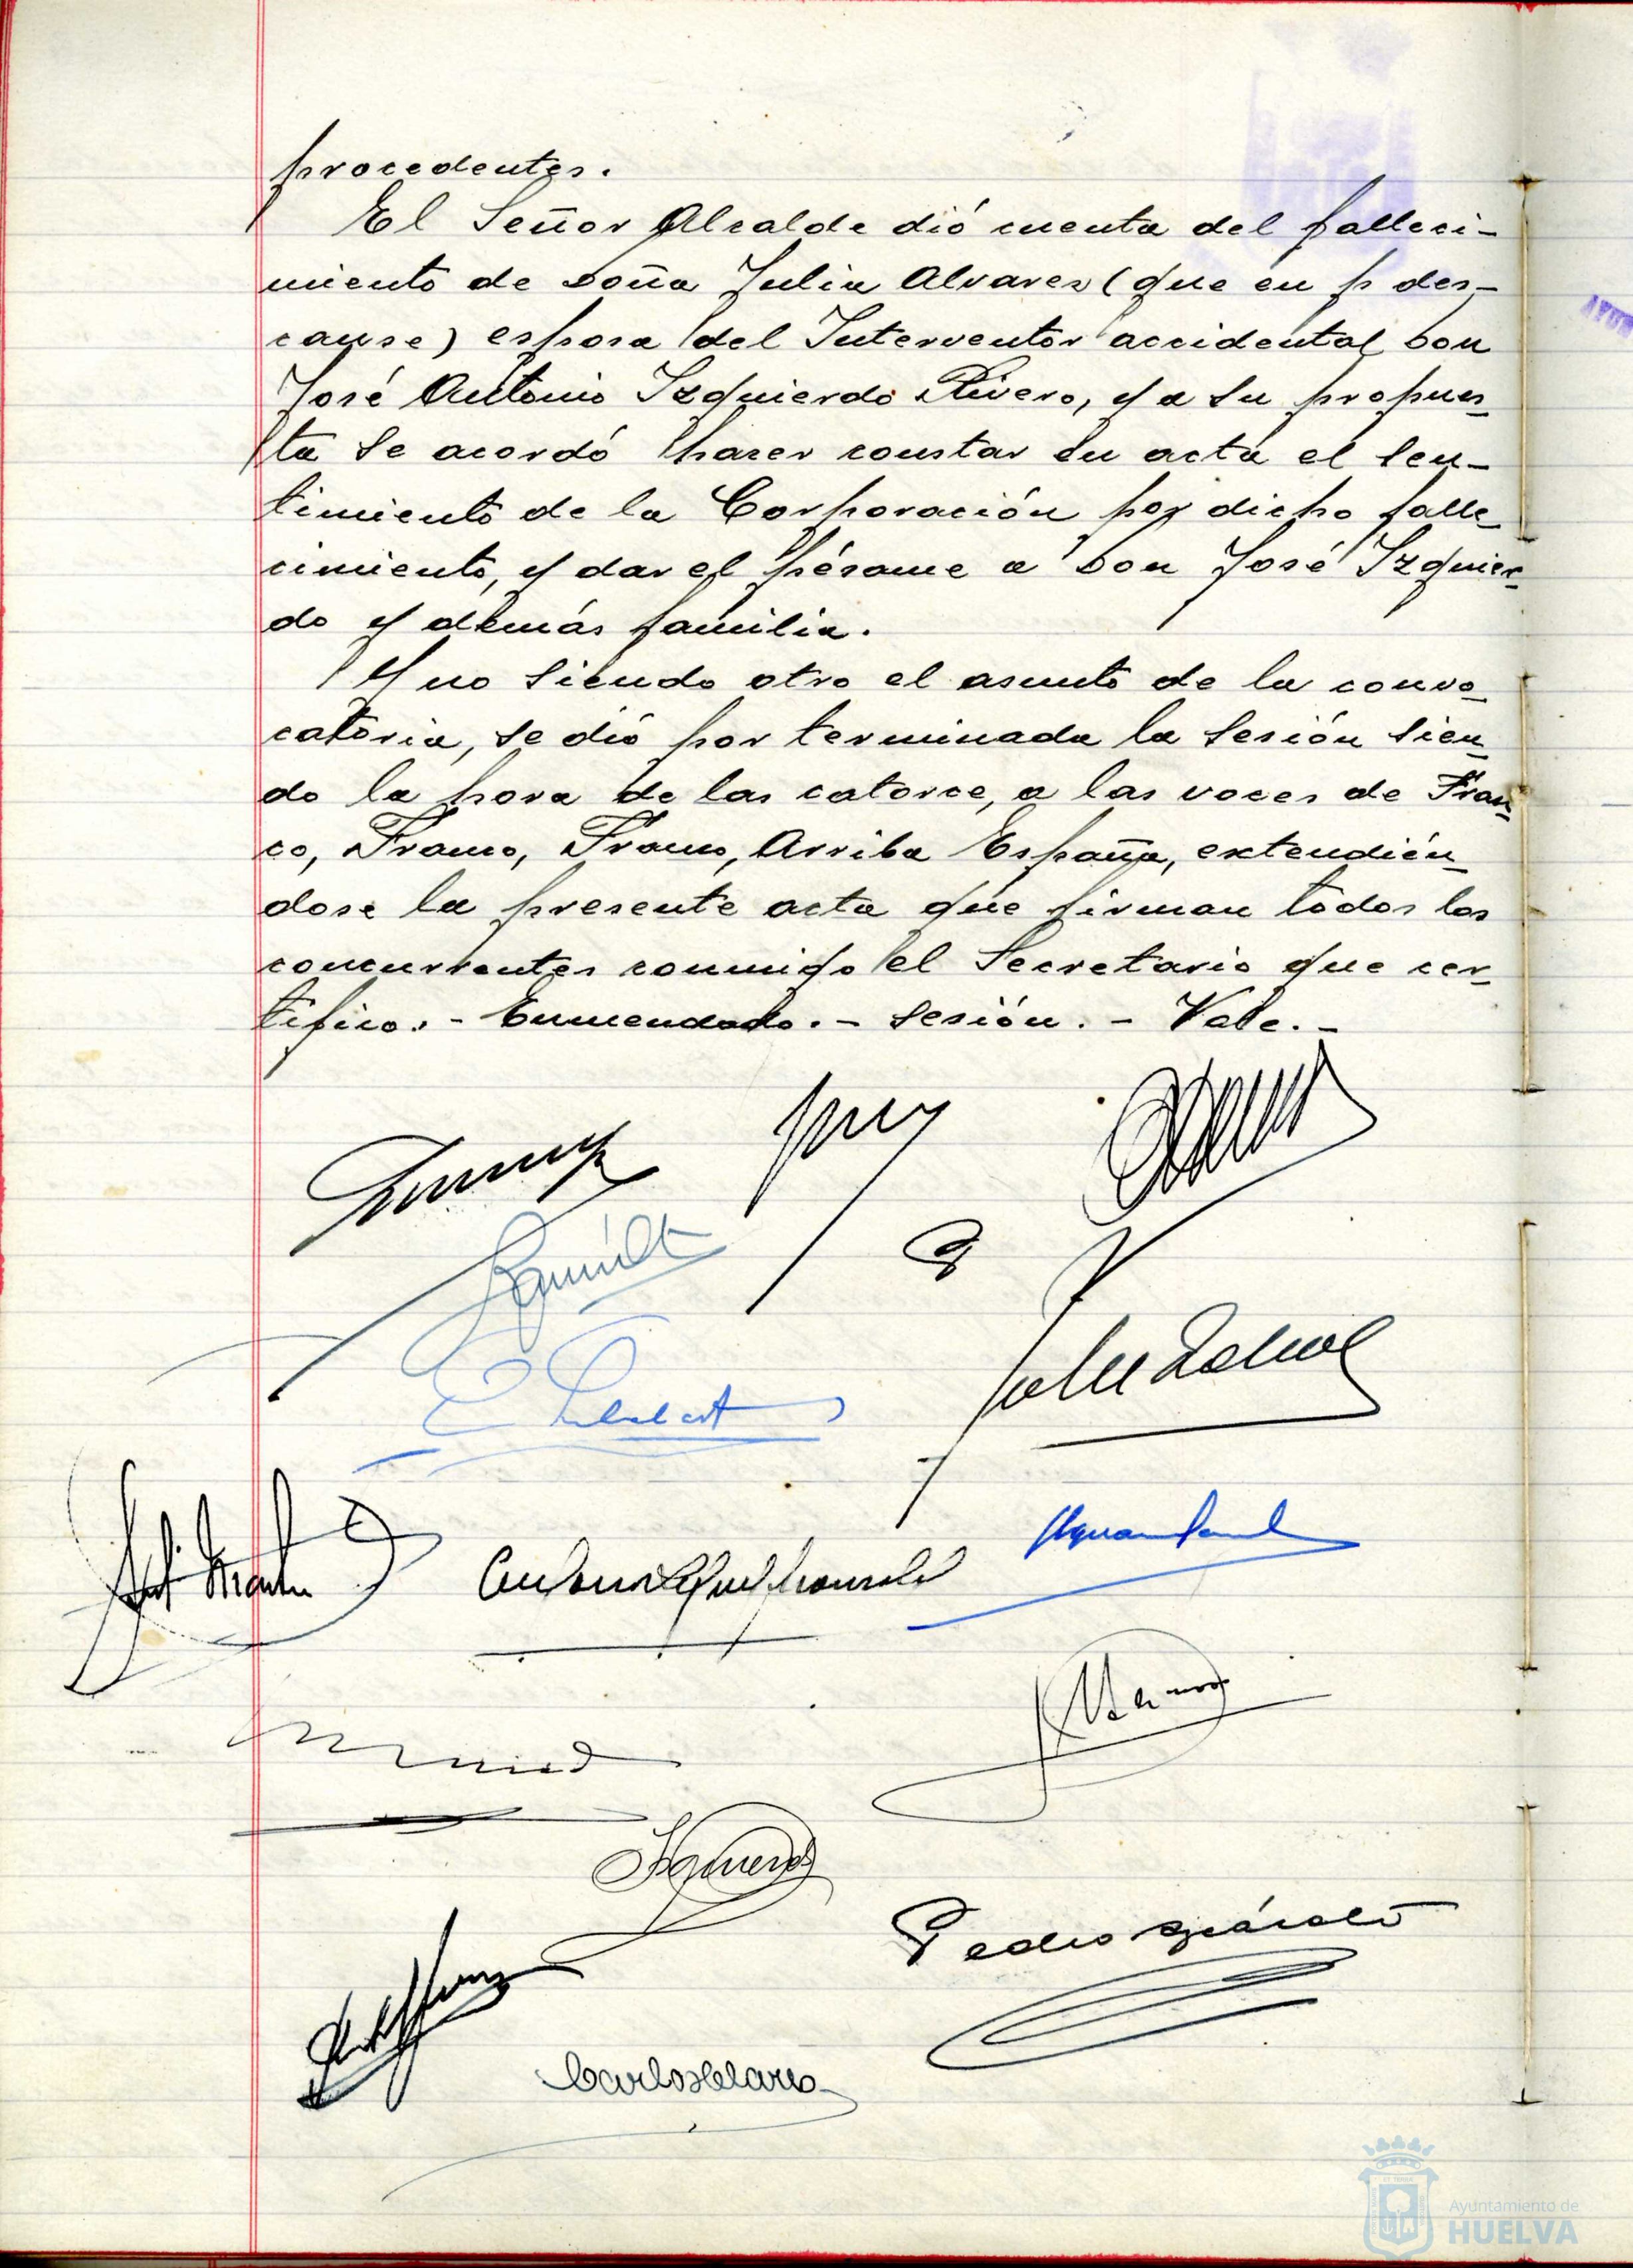 procedentes.
El Señor Alcalde dió cuenta del falleci-
miento de Doña Julia Alvarez (que en p des-
canse) esposa del Interventor accidental Don
José Antonio Izquierdo Rivero, y a su propues-
ta se acordó hacer constar en acta el sen-
timiento de la Corporación por dicho falle-
cimiento, y dar el pésame a Don José Izquier-
do y demás familia.
Y no siendo otro el asunto de la convo-
catoria, se dió por terminada la sesión sien-
do la hora de las catorce, a las voces de Fran-
co, Franco, Franco, Arriba España, extendién-
dose la presente acta que firman todos los
concurrentes conmigo el Secretario que cer-
tifico.- Enmendado.- sesión.- Vale.-
Izquierdo
Pedro
Carlos
Ayuntamiento de
HUELVA